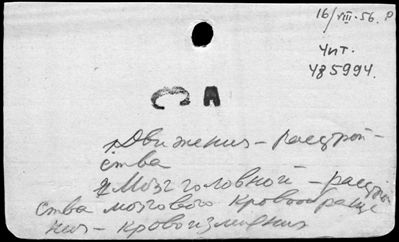 16/VIII-56. р
Чит.
485994.
СА
1. Движения - расстрой-
ства
2. Мозг головной - расстрой
ства мозгового кровообраще
ния - кровоизлияния